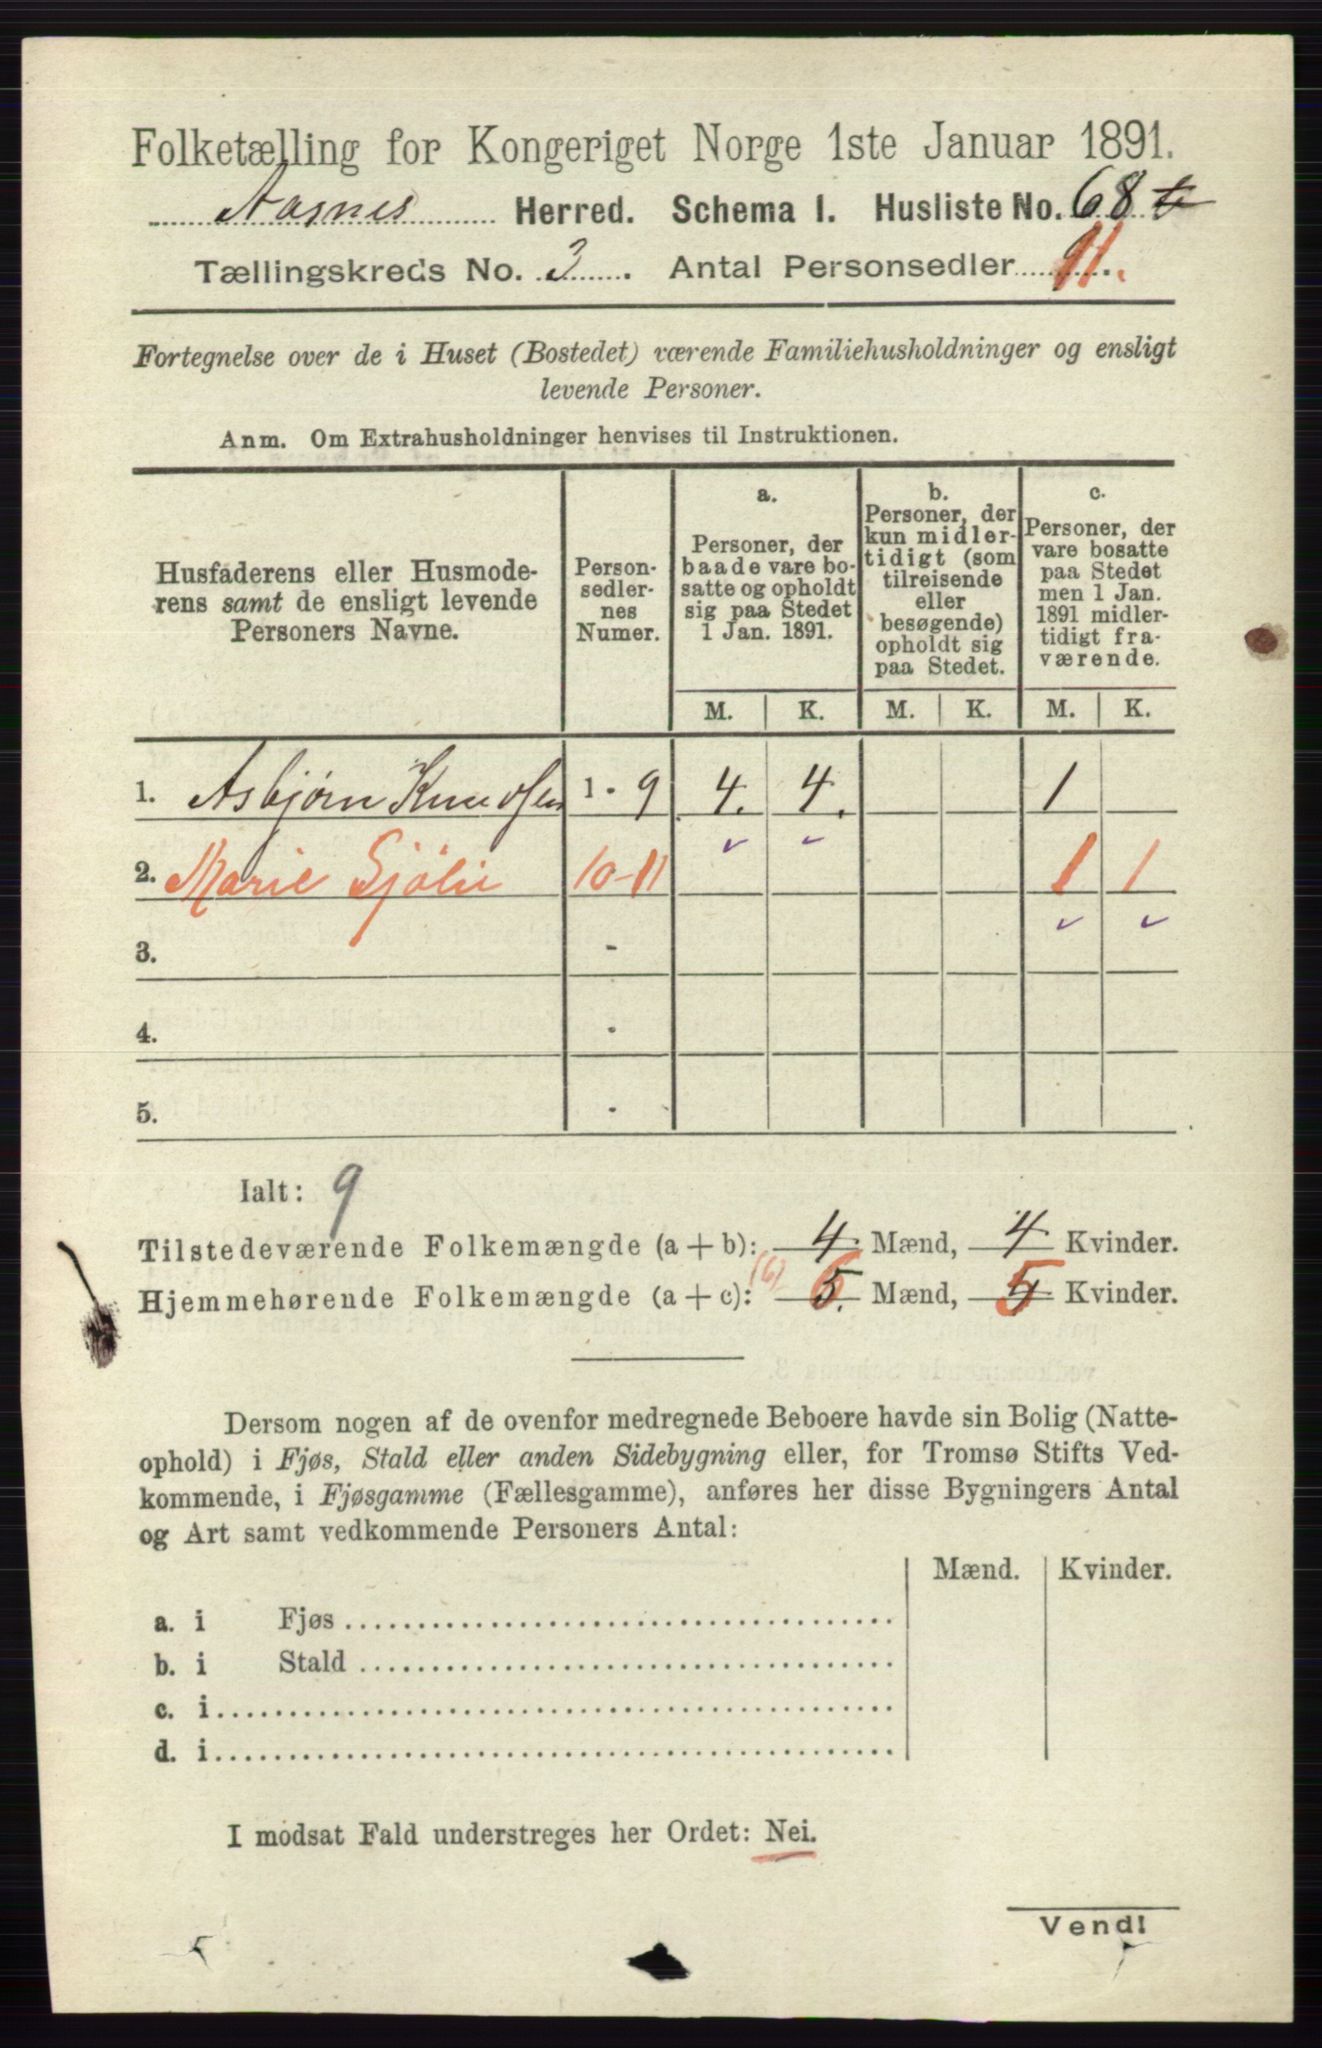 Folketælling for Kongeriget Norge 1ste Januar 1891.
Aasnes Herred. Schema I. Husliste No. 68
Tællingskreds No. 3. Antal Personsedler 11.
Fortegnelse over de i Huset (Bostedet) værende Familiehusholdninger og ensligt
levende Personer.
Anm. Om Extrahusholdninger henvises til Instruktionen.
Husfaderens eller Husmode-
rens samt de ensligt levende
Personers Navne.
Person-
sedler-
nes
Numer.
a.
Personer, der
baade vare bo-
satte og opholdt
sig paa Stedet
1 Jan. 1891.
b.
Personer, der
kun midler-
tidigt (som
tilreisende
eller
besøgende)
opholdt sig
paa Stedet.
c.
Personer, der
vare bosatte
paa Stedet
men 1 Jan.
1891 midler-
tidigt fra-
værende.
M. K. M. K. M. K.
1. Asbjørn Knudsen 1 - 9 4. 4. 1
2. Marie Sjölie 10-11 1 1
3. -
4. -
5. -
Ialt: 9
Tilstedeværende Folkemængde (a + b): 4. Mænd, 4 Kvinder.
Hjemmehørende Folkemængde (a + c): (6) 5. 6 Mænd, 4 5 Kvinder.
Dersom nogen af de ovenfor medregnede Beboere havde sin Bolig (Natte-
ophold) i Fjøs, Stald eller anden Sidebygning eller, for Tromsø Stifts Ved-
kommende, i Fjøsgamme (Fællesgamme), anføres her disse Bygningers Antal
og Art samt vedkommende Personers Antal:
Mænd. Kvinder.
a. i Fjøs
b. i Stald
c. i
d. i
I modsat Fald understreges her Ordet: Nei.
Vend!